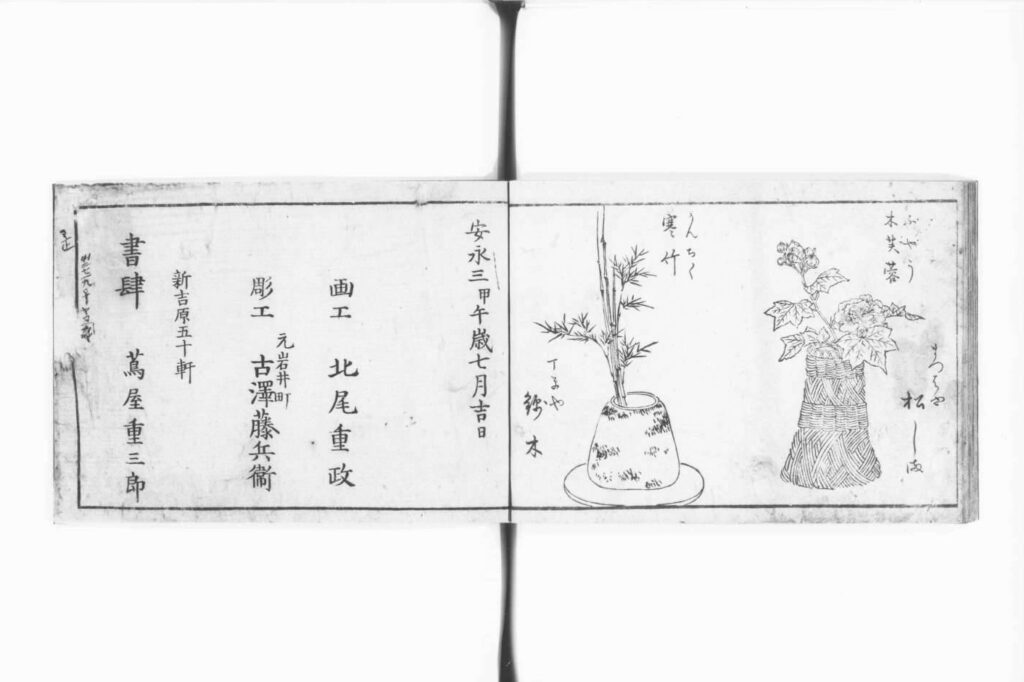 木芙蓉
ぶやう
松しま
寒竹
かんちく
丁子や
錦木
安永三甲午歳七月吉日
画工 北尾重政
彫工 元岩井町 古澤藤兵衞
新吉原五十軒
書肆 蔦屋重三郎